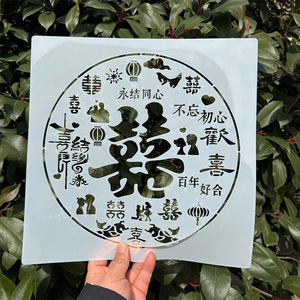 囍
囍
喜
永结同心
不忘初心
歡
喜
囍
百年好合
囍
囍
喜